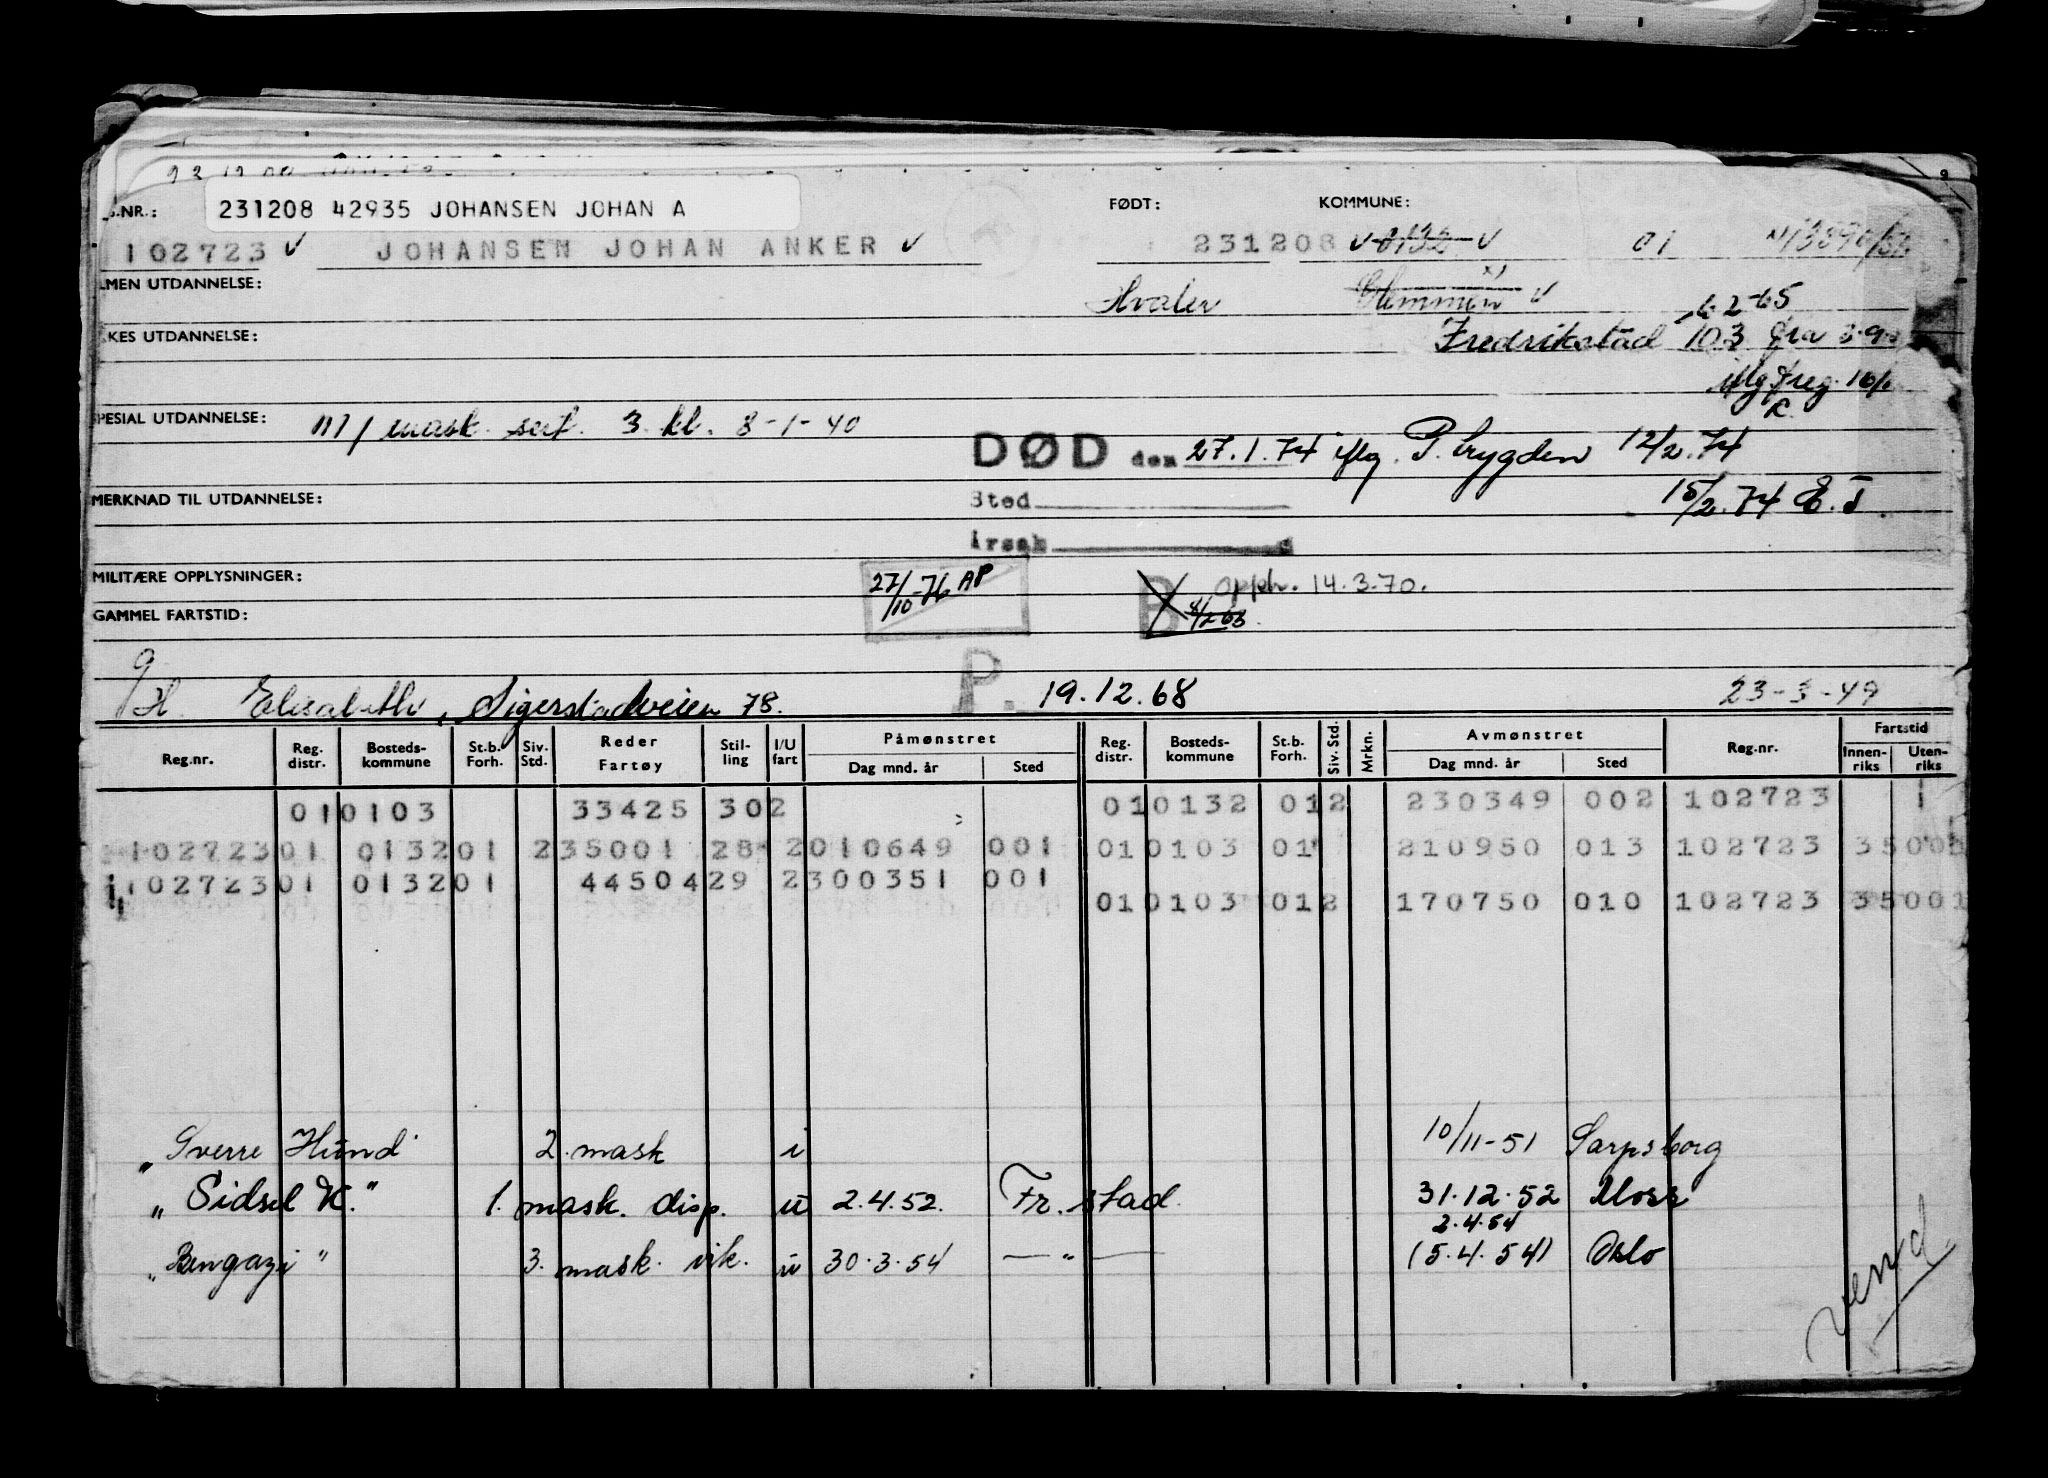 231208 42935 JOHANSEN JOHAN A
FØDT: KOMMUNE:
102723 V JOHANSEN JOHAN ANKER V 231208 V 0132 V 01
LMEN UTDANNELSE: Hvaler Glemmen V
6.2-65
KES UTDANNELSE: Fredrikstad 103 fra
iflg freg.
SPESIAL UTDANNELSE: m/ mask. sert. 3. kl. 8-1-40
DØD den 27.1.74 iflg. P. trygden 12/2.74
MERKNAD TIL UTDANNELSE: Sted 15/2.74 E.T.
Årsak
MILITÆRE OPPLYSNINGER: 27/10-76 AP B opph. 14.3.70.
GAMMEL FARTSTID:
g
H Elisabeth, Sigerstadveien 78. P. 19.12.68 23-3-49
Reg.nr. Reg. distr. Bosteds- kommune St.b. Forh. Siv. Std. Reder Fartøy Stil- ling I/U fart Påmønstret Dag mnd. år Sted Reg. distr. Bosteds- kommune St.b. Forh. Siv. Std. Mrkn. Avmønstret Dag mnd. år Sted Reg.nr. Fartstid Innen- riks Uten- riks
010103 33425 302 010132 012 230349 002 102723 1
102723 01 013201 235001 28 2010649 001 010103 01 210950 013 102723 3500
102723 01 013201 4450429 2300351 001
010103 012 170750 010 102723 35001
„Sverre Hund" 2. mask i 10/11-51 Sarpsborg
„Sidsel K." 1. mask. disp. u 2.4.52. Fr.stad. 31.12.52 Moss
2.4.54
„Bengazi" 3. mask. vik. u 30.3.54 — " — (5.4.54) Oslo
vend